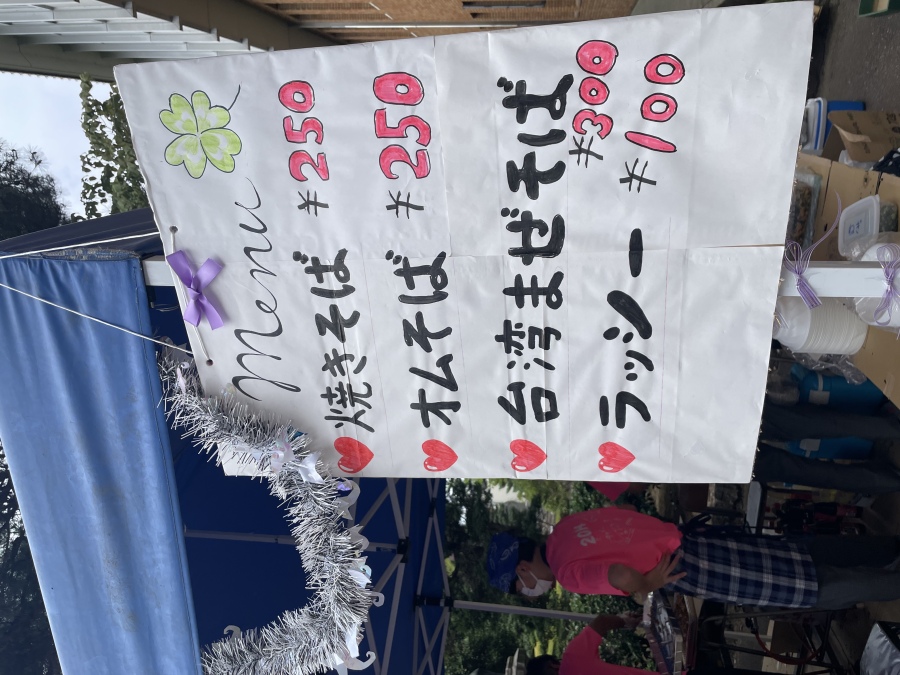 Menu
焼きそば ¥250
オムそば ¥250
台湾まぜそば ¥300
ラッシー ¥100